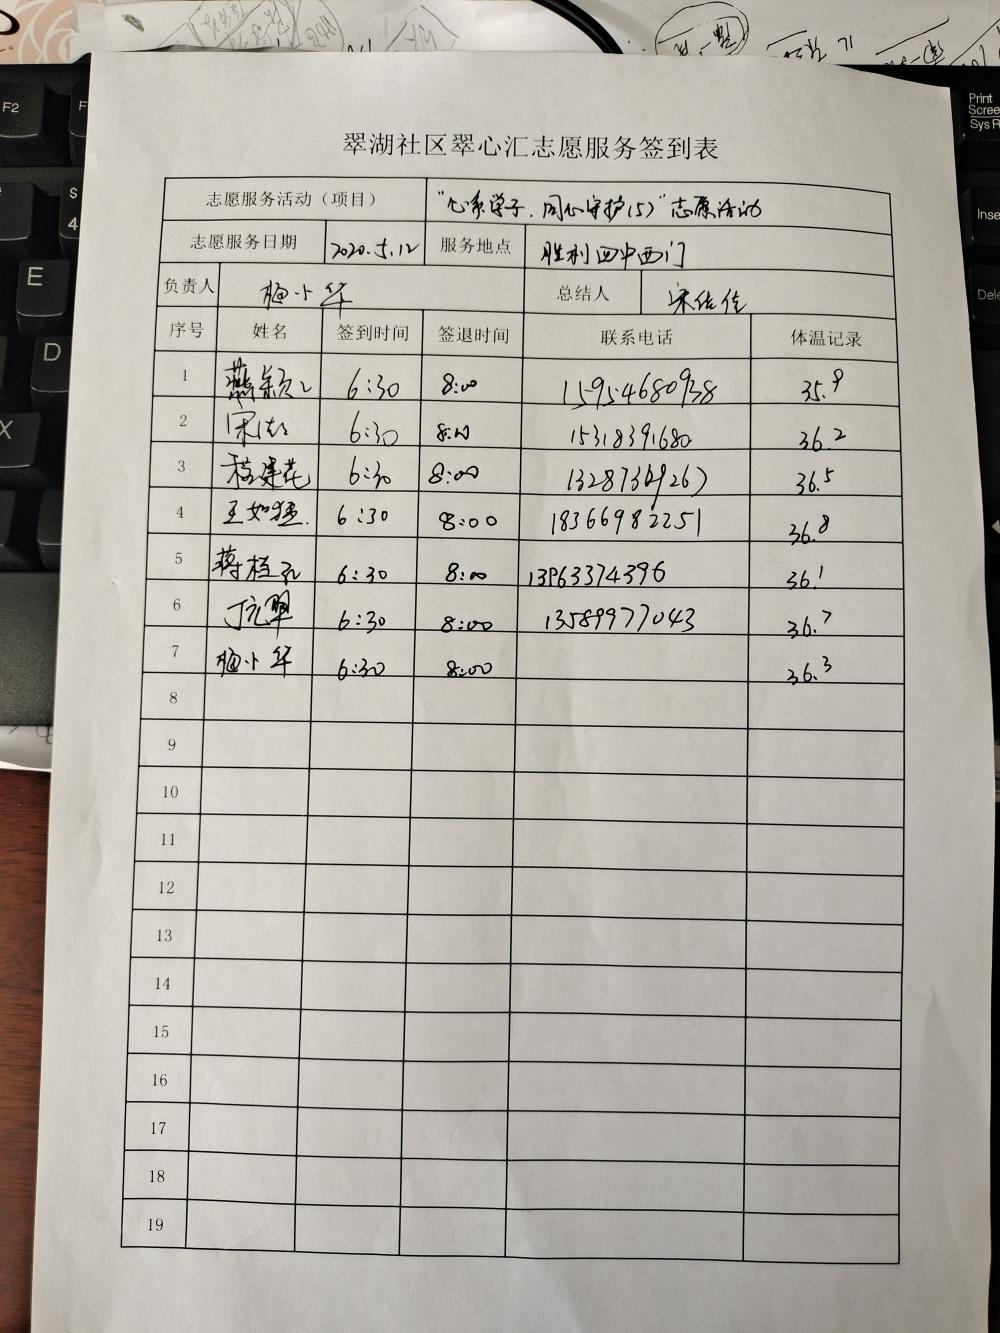 翠湖社区翠心汇志愿服务签到表
志愿服务活动（项目） "心系学子，同心守护(5)"志愿活动
志愿服务日期 2020.5.12 服务地点 胜利四中西门
负责人 梅小华 总结人 宋佳佳
序号 姓名 签到时间 签退时间 联系电话 体温记录
1 6:30 8:00 15954680938 35.9
2 6:30 8:00 15318391680 36.2
3 6:30 8:00 36.5
4 6:30 8:00 18366982251 36.8
5 6:30 8:00 13963374396 36.1
6 6:30 8:00 13589977043 36.7
7 梅小华 6:30 8:00 36.3
8
9
10
11
12
13
14
15
16
17
18
19
F2
$
4
E
D
X
Print
Scree
Sys R
Inse
Dele